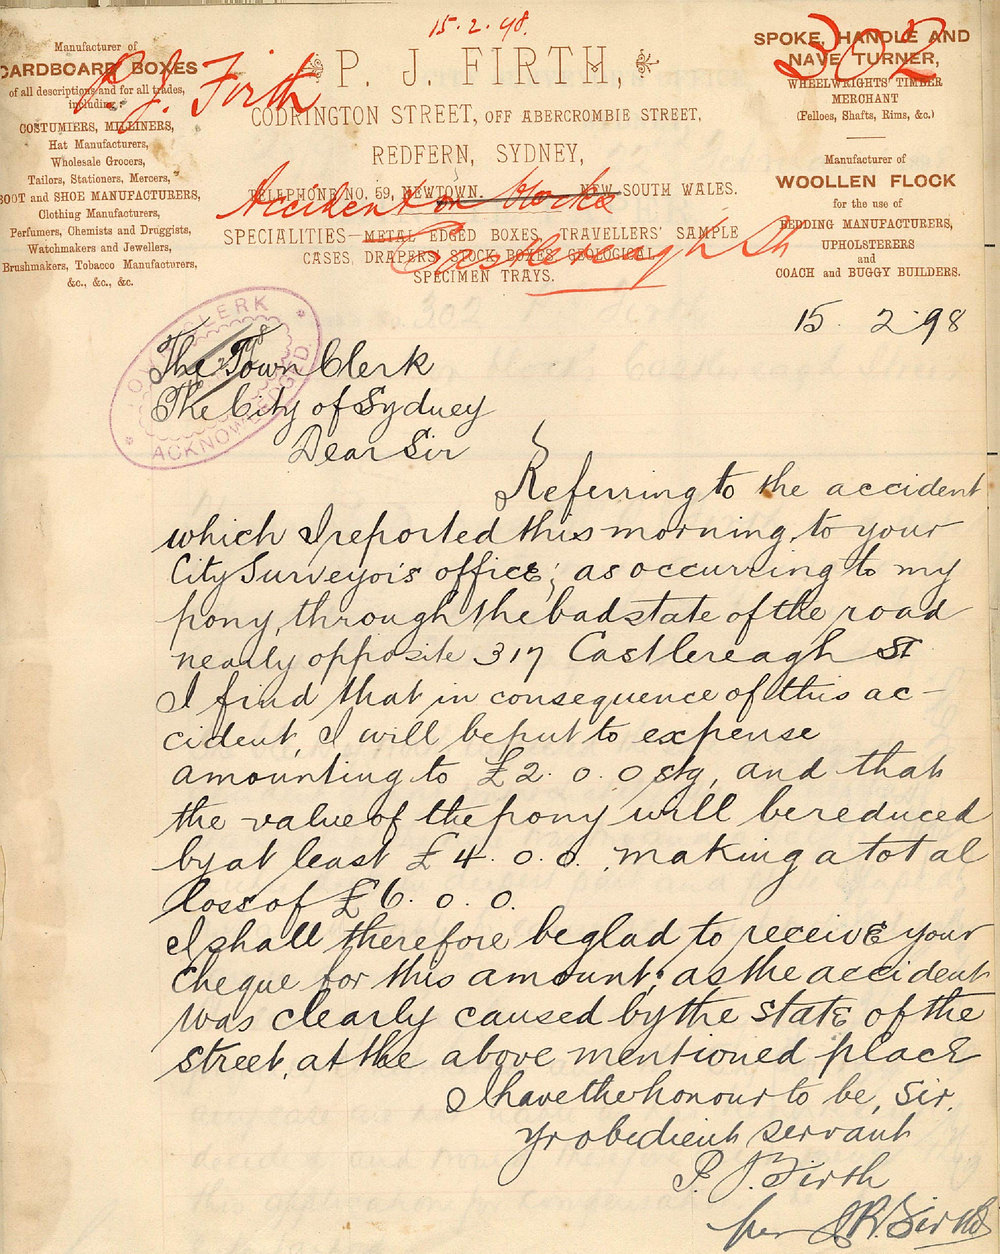 15.2.98.
302
P. J. Firth
Manufacturer of
CARDBOARD BOXES
of all descriptions and for all trades,
including
COSTUMIERS, MILLINERS,
Hat Manufacturers,
Wholesale Grocers,
Tailors, Stationers, Mercers,
BOOT and SHOE MANUFACTURERS,
Clothing Manufacturers,
Perfumers, Chemists and Druggists,
Watchmakers and Jewellers,
Brushmakers, Tobacco Manufacturers,
&c., &c., &c.
P. J. FIRTH,
CODRINGTON STREET, OFF ABERCROMBIE STREET,
REDFERN, SYDNEY,
TELEPHONE NO. 59, NEWTOWN. NEW SOUTH WALES.
SPECIALITIES—METAL EDGED BOXES, TRAVELLERS' SAMPLE
CASES, DRAPERS' STOCK BOXES, GEOLOGICAL
SPECIMEN TRAYS.
SPOKE, HANDLE AND
NAVE TURNER,
WHEELWRIGHTS' TIMBER
MERCHANT
(Felloes, Shafts, Rims, &c.)
Manufacturer of
WOOLLEN FLOCK
for the use of
BEDDING MANUFACTURERS,
UPHOLSTERERS
and
COACH and BUGGY BUILDERS.
Accident on blocks
Castlereagh St
15 . 2 . 98
TOWN CLERK
ACKNOWLEDGED.
The Town Clerk
The City of Sydney
Dear Sir
Referring to the accident
which I reported this morning, to your
City Surveyor's office; as occurring to my
pony, through the bad state of the road
nearly opposite 317 Castlereagh St
I find that in consequence of this ac-
cident, I will be put to expense
amounting to £2. 0. 0 stg, and that
the value of the pony will be reduced
by at least £4. 0. 0. making a total
loss of £6. 0. 0.
I shall therefore be glad to receive your
cheque for this amount; as the accident
was clearly caused by the state of the
street, at the above mentioned place
I have the honour to be, Sir,
Yr obedient servant
P. J. Firth
per J R. Firth